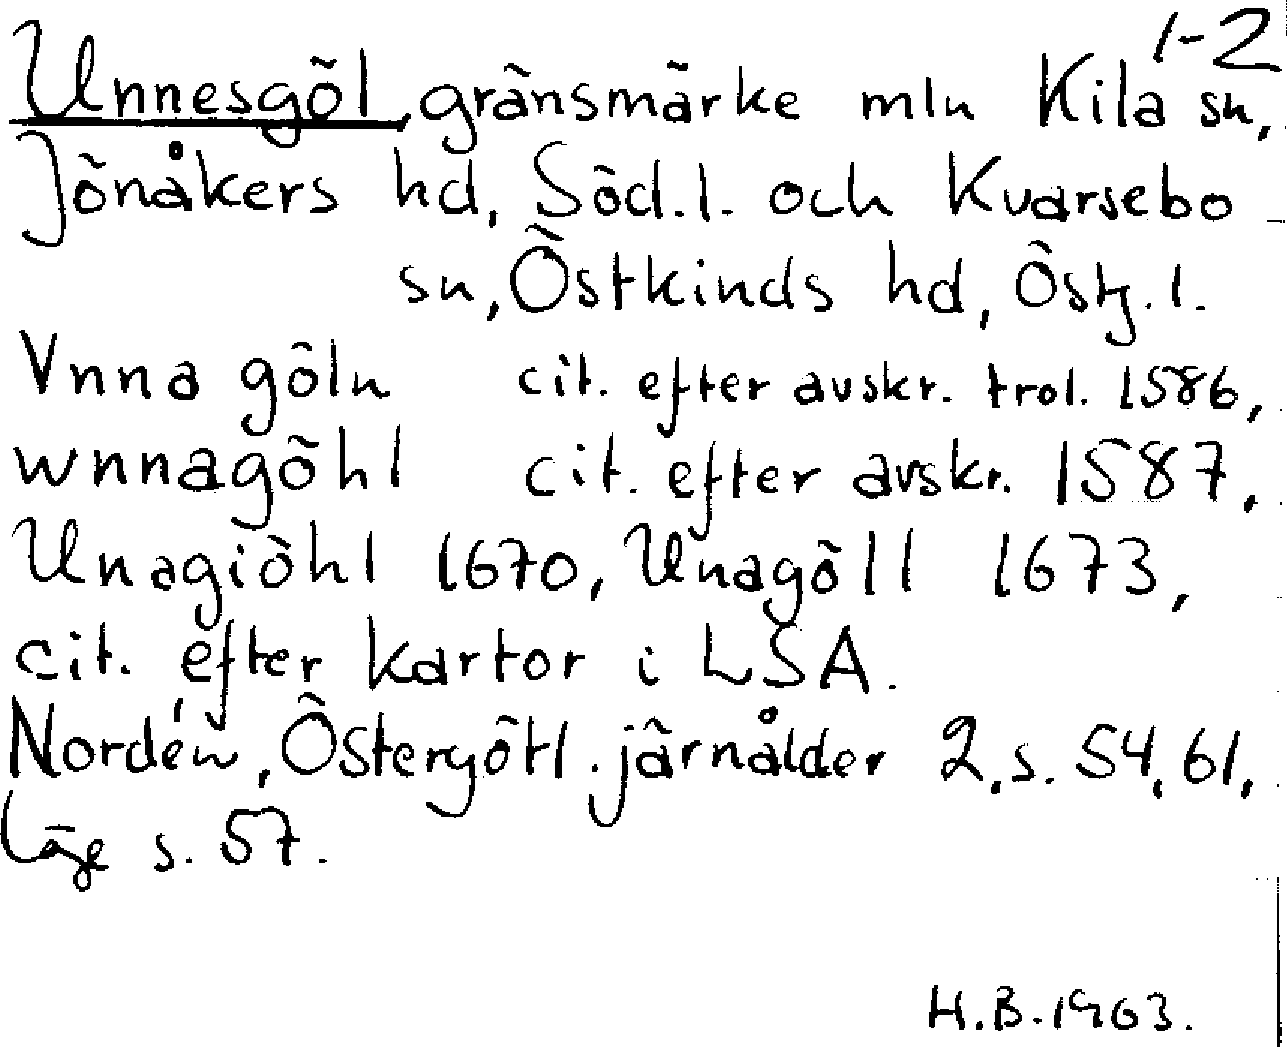 1-2
Unnesgöl, gränsmärke mln Kila sn,
Jönåkers hd, Söd.l. och Kvarsebo
sn, Östkinds hd, Östg.l.
Vnna göln cit. efter avskr. trol. 1586,
wnnagöhl cit. efter avskr. 1587,
Unagiöhl 1670, Unagöll 1673,
cit. efter kartor i LSA.
Nordén, Östergötl. järnålder 2, s. 54, 61,
läge s. 57.
H.B. 1963.